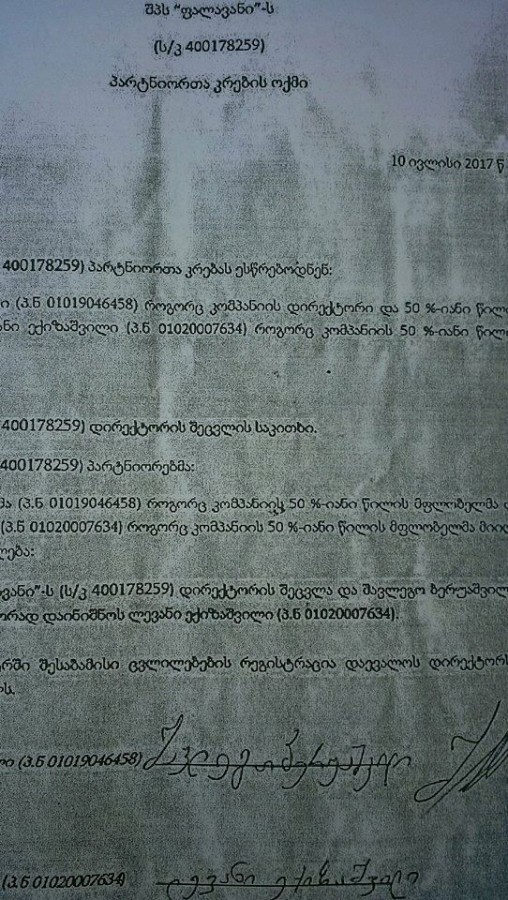 შპს “ფალავანი”-ს
(ს/კ 400178259)
პარტნიორთა კრების ოქმი
10 ივლისი 2017 წ
400178259) პარტნიორთა კრებას ესწრებოდნენ:
ი (პ.ნ 01019046458) როგორც კომპანიის დირექტორი და 50 %-იანი წილ
ნი ექიზაშვილი (პ.ნ 01020007634) როგორც კომპანიის 50 %-იანი წილ
400178259) დირექტორის შეცვლის საკითხი.
400178259) პარტნიორებმა:
მა (პ.ნ 01019046458) როგორც კომპანიის 50 %-იანი წილის მფლობელმა
(პ.ნ 01020007634) როგორც კომპანიის 50 %-იანი წილის მფლობელმა მიიღ
ლება:
ვანი”-ს (ს/კ 400178259) დირექტორის შეცვლა და შავლეგო ბერუაშვილ
ორად დაინიშნოს ლევანი ექიზაშვილი (პ.ნ 01020007634).
რში შესაბამისი ცვლილებების რეგისტრაცია დაევალოს დირექტორს
ლს.
ლი (პ.ნ 01019046458) შავლეგო ბერუაშვილი
(პ.ნ 01020007634) ლევანი ექიზაშვილი